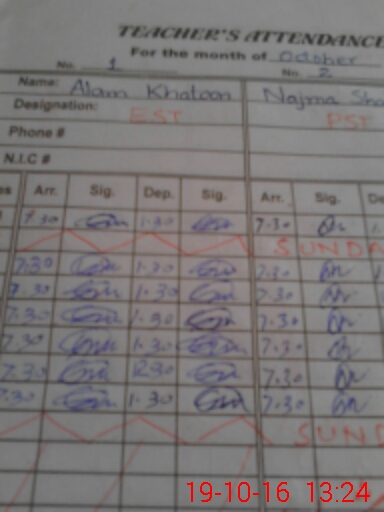 TEACHER'S ATTENDANCE
For the month of October
No. 1 No. 2
Name: Alam Khatoon Najma
Designation: EST PST
Phone #
N.I.C #
Arr. Sig. Dep. Sig. Arr. Sig.
7.30 1.30 7.30
SUNDA
7.30 1.30 7.30
7.30 1.30 7.30
7.30 1.30 7.30
7.30 1.30 7.30
7.30 7.30
7.30 1.30 7.30
SUND
19-10-16 13:24